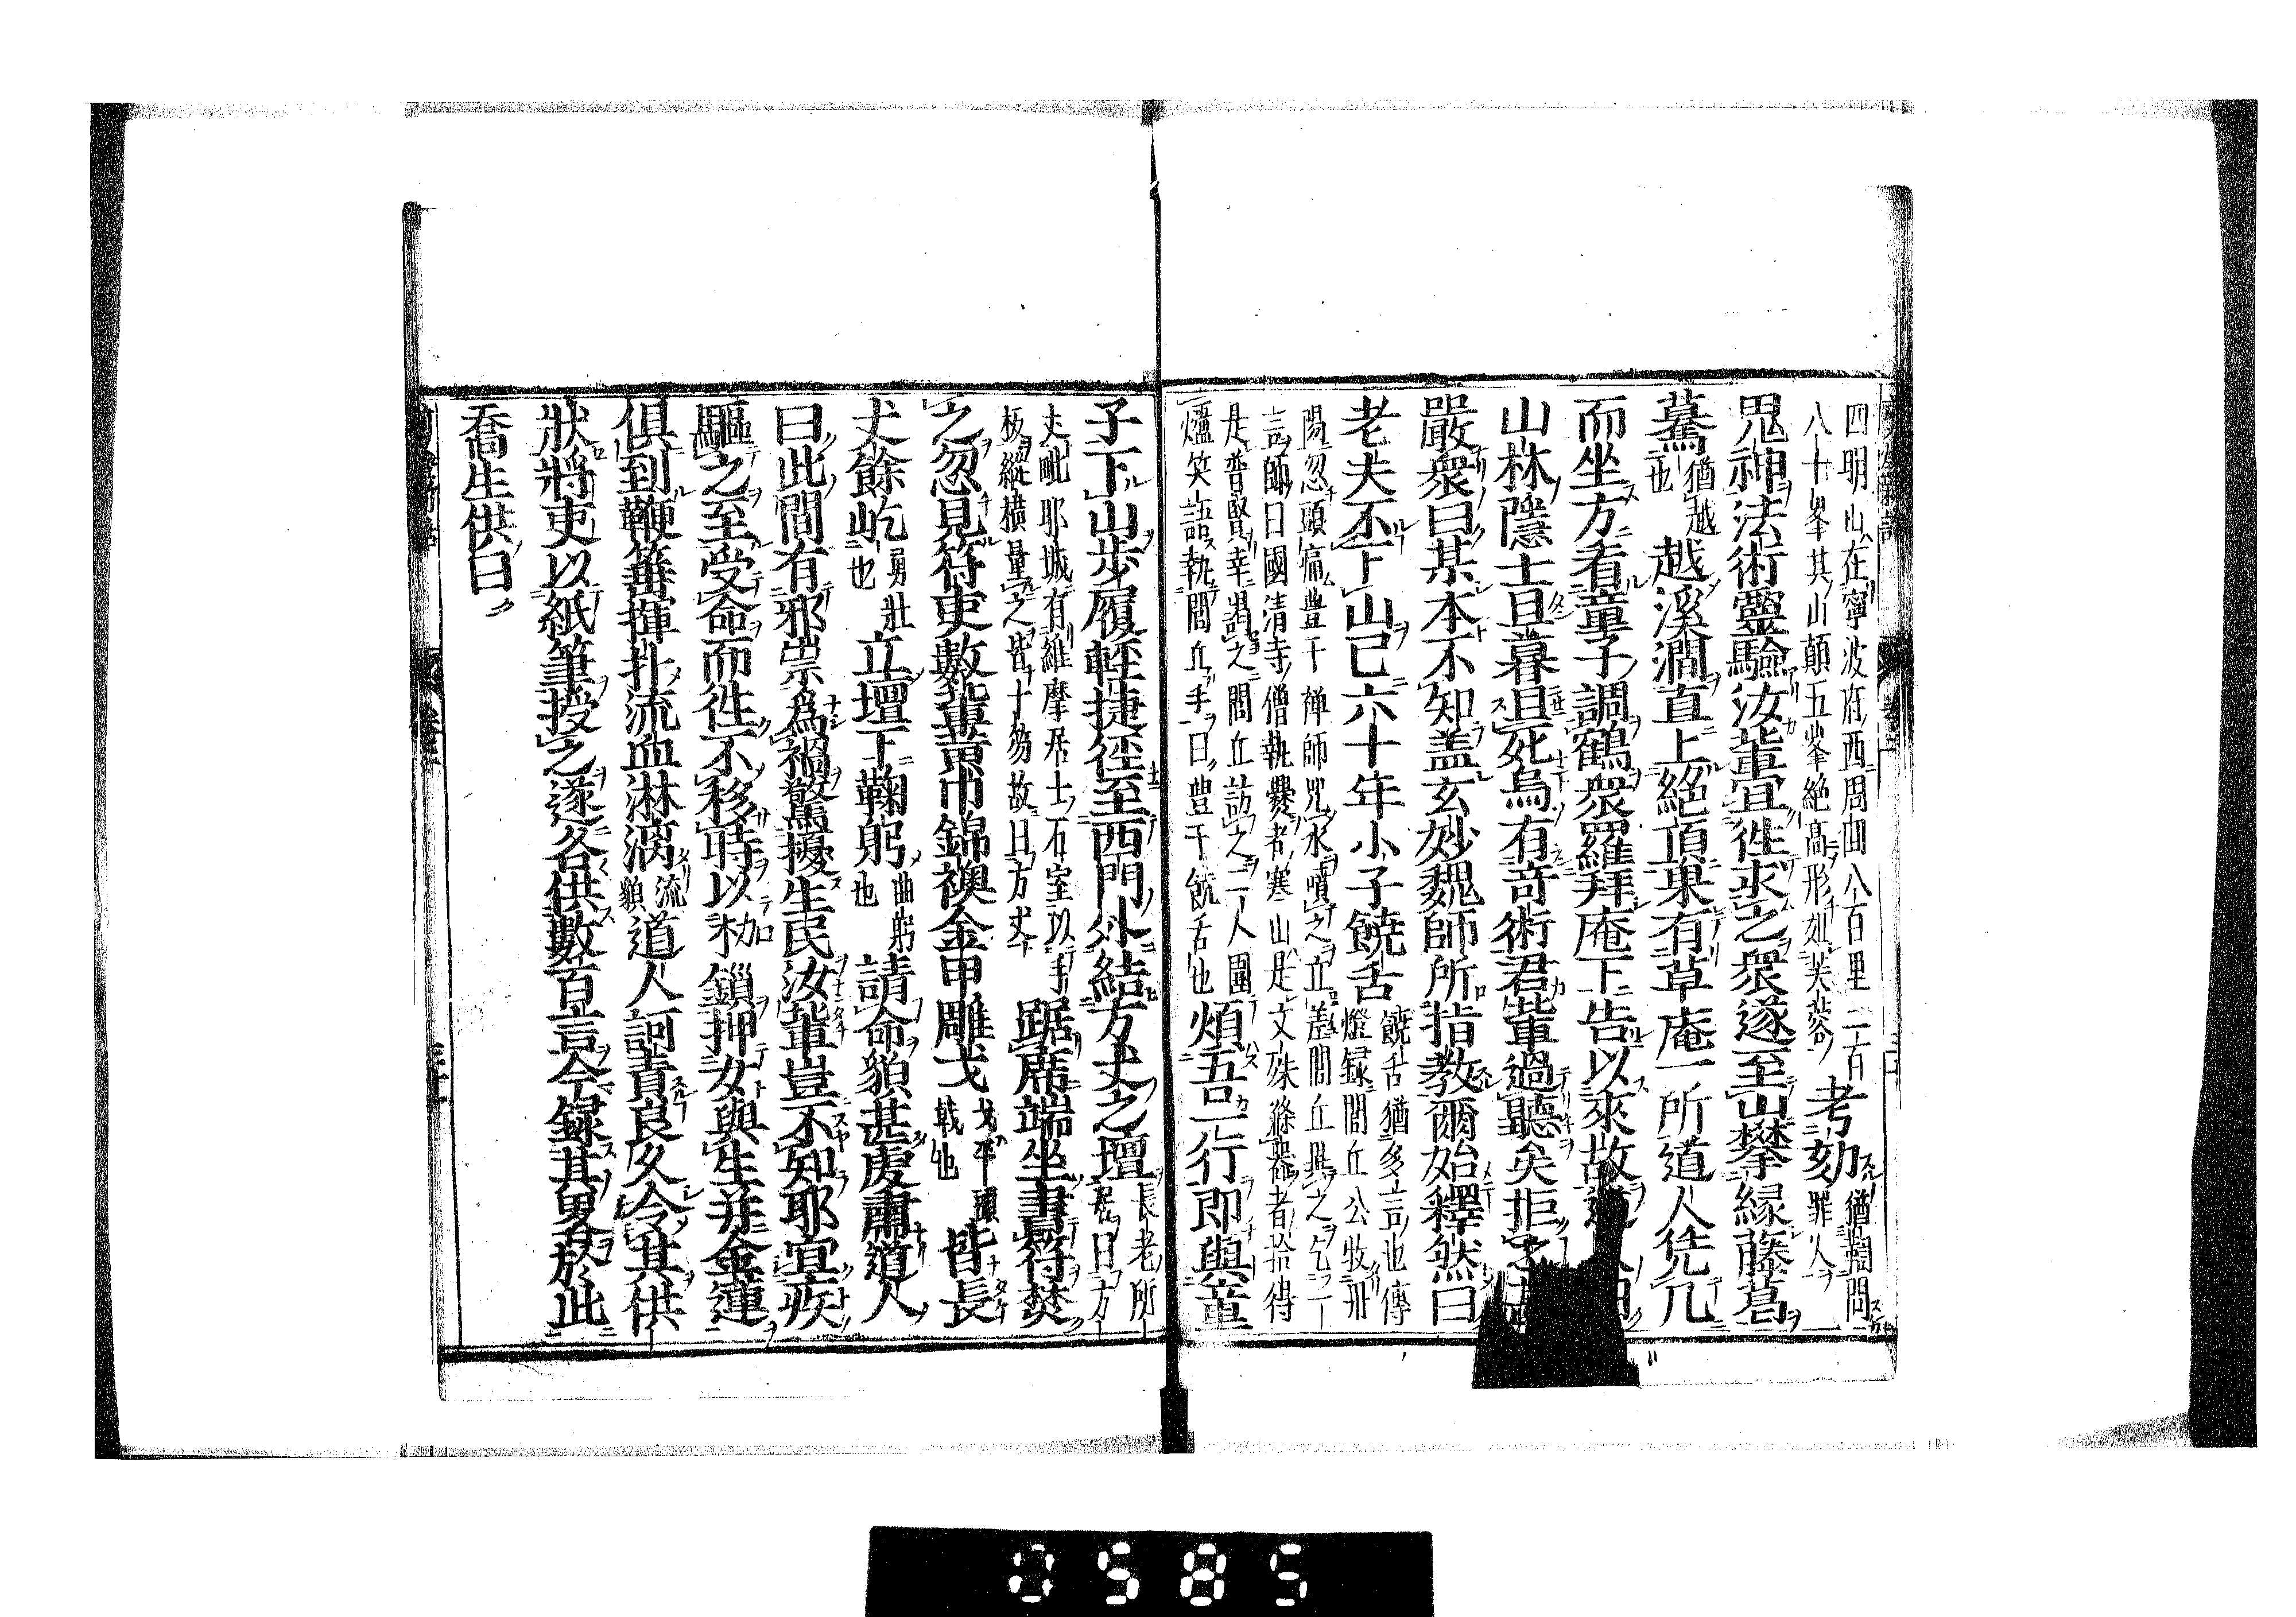 四明山在寧波府西周曲八百里二百
八十峯其山顛五峯絶高形如芙蓉
考劾
猶鞫問
罪人
鬼神法術靈驗汝輩宜徃求之衆遂至山攀縁藤葛
驀
猶越
也
越溪澗直上絶頂果有草庵一所道人凭几
而坐方看童子調鶴衆羅拜庵下告以來故
山林隱士旦暮且死烏有竒術君輩過聽矣拒之
嚴衆曰某本不知盖玄妙魏師所指教爾始釋然曰
老夫不下山已六十年小子饒舌
饒舌猶多言也傳
燈録閭丘公牧
陽忽頭痛豊干禅師咒水噴之立差閭丘異之乞一
言師曰國清寺僧執爨者寒山是文殊滌器者拾得
是普賢幸謁之閭丘訪之二人圍
爐笑語執閭丘手曰豊干饒舌也
煩吾一行即與童
子下山歩履輕捷徑至西門外結方丈之壇
長老所
居曰方
丈毗耶城有維摩居士石室以手
板縱横量之皆十笏故曰方丈
踞席端坐書符焚
之忽見符吏數輩黄巾錦襖金甲雕戈
戈平頭
戟也
皆長
丈餘屹
勇壯
也
立壇下鞠躬
曲躬
也
請命貌甚虔肅道人
曰此間有邪祟爲禍驚擾生民汝輩豈不知耶宜疾
驅之至受命而徃不移時以枷鎖押女與生并金蓮
俱到鞭箠揮扑流血淋漓
流
貌
道人訶責良久令其供
狀將吏以紙筆授之遂各供數百言今録其畧於此
喬生供曰
0585